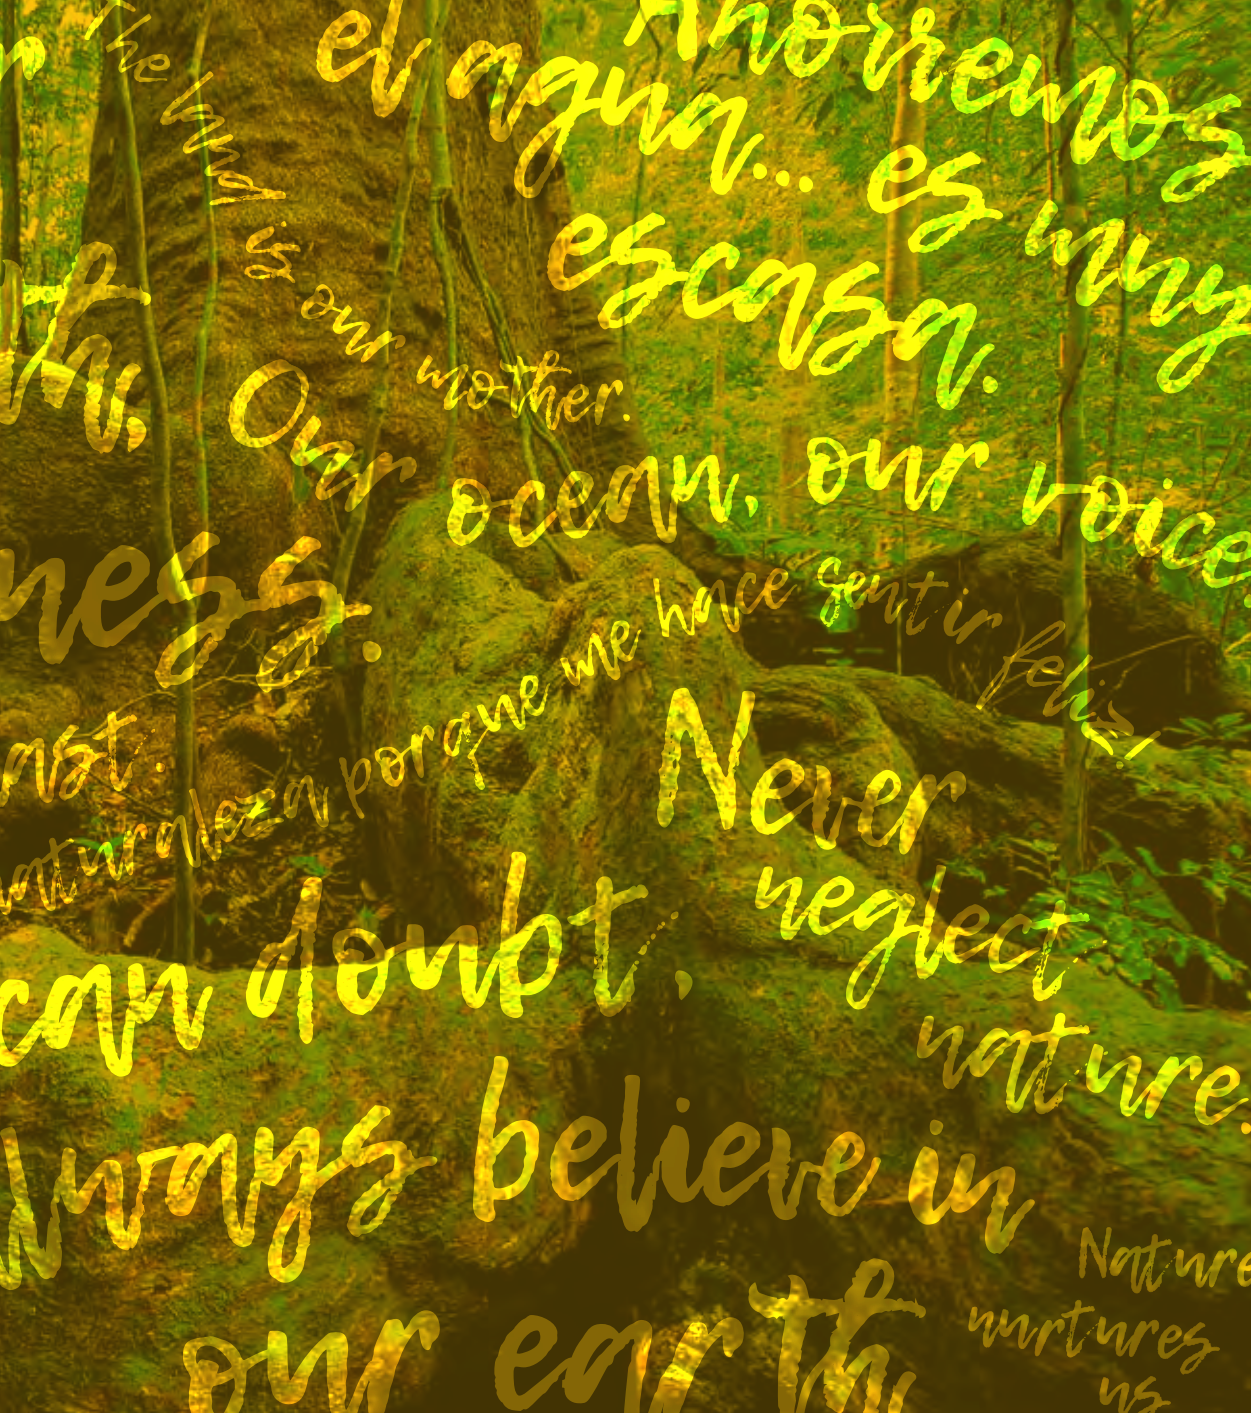 The land is our mother.
el agua... es muy
escasa.
Ahorremos
th,
Our ocean, our voice.
ness.
ast.
naturaleza porque me hace sentir feliz!
Never
neglect
nature.
can doubt,
always believe in
our earth
Nature
nurtures
us